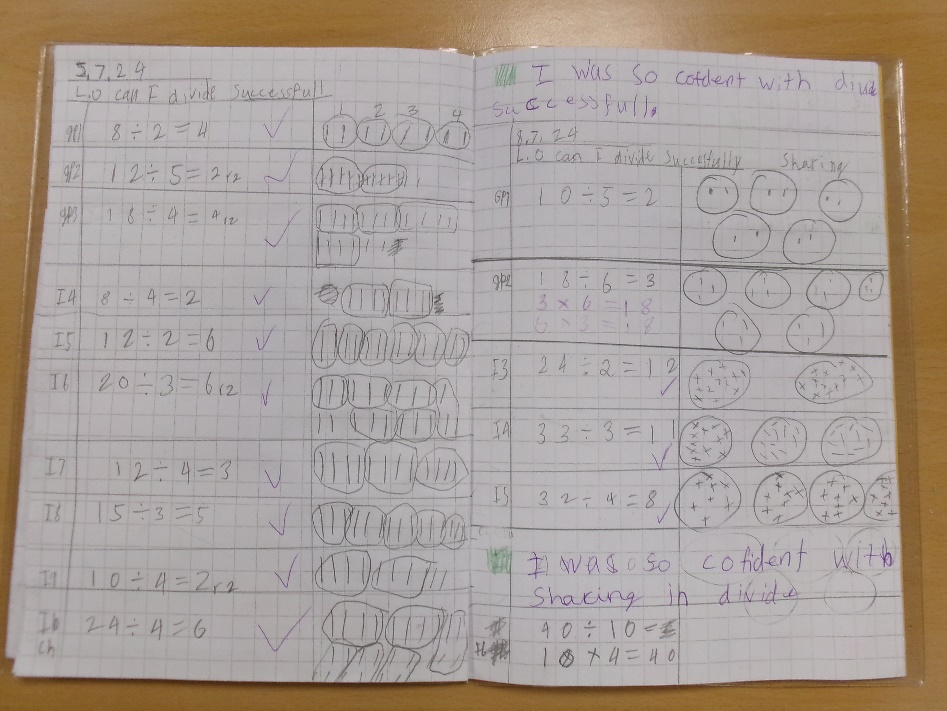 5.7.24
L.O can I divide successfull
gp1 8 ÷ 2 = 4
1 2 3 4
gp2 12 ÷ 5 = 2r2
gp3 18 ÷ 4 = 4r2
I4 8 ÷ 4 = 2
I5 12 ÷ 2 = 6
I6 20 ÷ 3 = 6r2
I7 12 ÷ 4 = 3
I8 15 ÷ 3 = 5
I9 10 ÷ 4 = 2r2
24 ÷ 4 = 6
ch
I was so cofdent with divide
successfull.
8.7.24
L.O can I divide succesfully Sharing
GP1 10 ÷ 5 = 2
gp2 18 ÷ 6 = 3
3 × 6 = 18
6 × 3 = 18
I3 24 ÷ 2 = 12
I4 33 ÷ 3 = 11
I5 32 ÷ 4 = 8
I was so cofident with
sharing in divide
40 ÷ 10 =
10 × 4 = 40